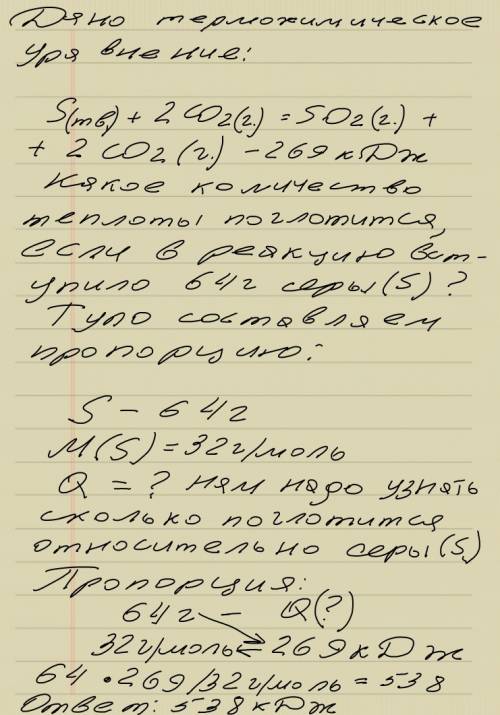 Дано термохимическое
уравнение:
S(тв.) + 2CO2(г.) = SO2(г.) +
+ 2CO2(г.) - 269 кДж
Какое количество
теплоты поглотится,
если в реакцию вст-
упило 64г серы(S)?
Тупо составляем
пропорцию:
S - 64г
M(S) = 32г/моль
Q = ? нам надо узнать
сколько поглотится
относительно серы(S)
Пропорция:
64г - Q(?)
32г/моль = 269кДж
64 · 269/32г/моль = 538
Ответ: 538кДж